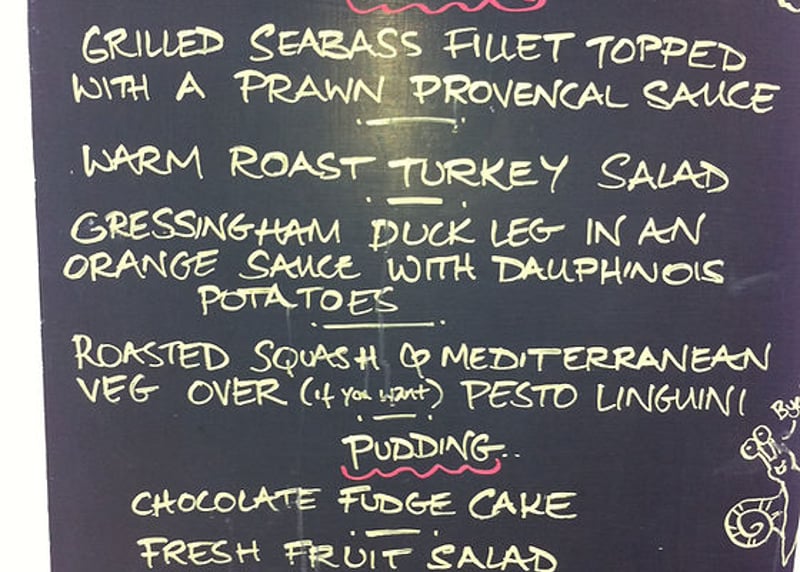 GRILLED SEABASS FILLET TOPPED
WITH A PRAWN PROVENCAL SAUCE
WARM ROAST TURKEY SALAD
GRESSINGHAM DUCK LEG IN AN
ORANGE SAUCE WITH DAUPHINOIS
POTATOES
ROASTED SQUASH & MEDITERRANEAN
VEG OVER (if you want) PESTO LINGUINI
PUDDING..
CHOCOLATE FUDGE CAKE
FRESH FRUIT SALAD